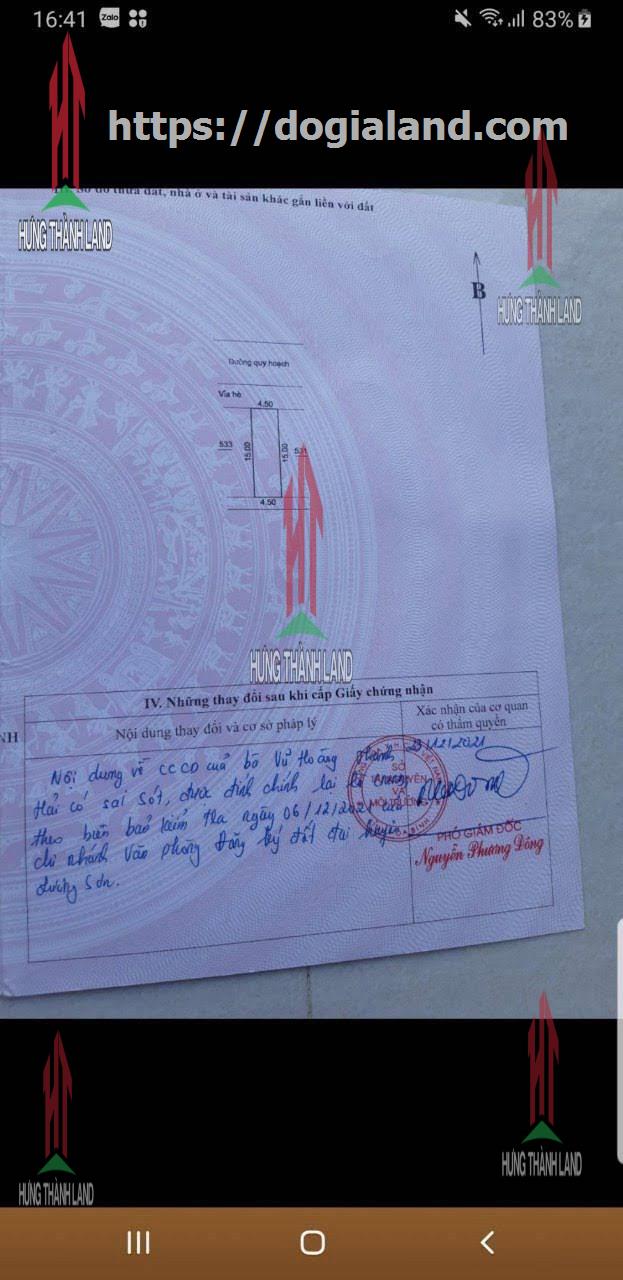 16:41 Zalo 83%
https://dogialand.com
III. Sơ đồ thửa đất, nhà ở và tài sản khác gắn liền với đất
HƯNG THÀNH LAND
B
HƯNG THÀNH LAND
Đường quy hoạch
Vỉa hè
4.50
533
15.00
15.00
531
4.50
HƯNG THÀNH LAND
IV. Những thay đổi sau khi cấp Giấy chứng nhận
NH
Nội dung thay đổi và cơ sở pháp lý
Xác nhận của cơ quan
có thẩm quyền
Nội dung về CCCD của bà Vũ Hoàng
23/12/2021
Hải có sai sót, được đính chính lại
theo biên bản kiểm tra ngày 06/12/2021 của
chi nhánh Văn phòng Đăng ký đất đai huyện
Lương Sơn.
SỞ
TÀI NGUYÊN
VÀ
MÔI TRƯỜNG
PHÓ GIÁM ĐỐC
Nguyễn Phương Đông
HƯNG THÀNH LAND
HƯNG THÀNH LAND